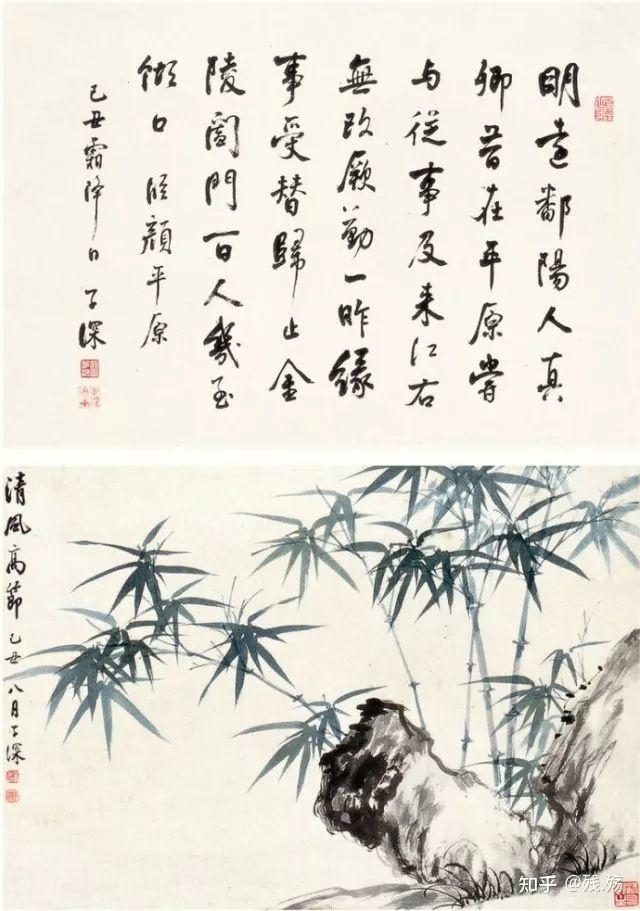 明遠鄱陽人真
卿昔在平原嘗
与從事及来江右
無改厥勤一昨緣
事受替歸止金
陵闔門百人幾至
餬口 臨顏平原
己丑霜降日 子深
清風高節 己丑八月子深
知乎 @残.殇